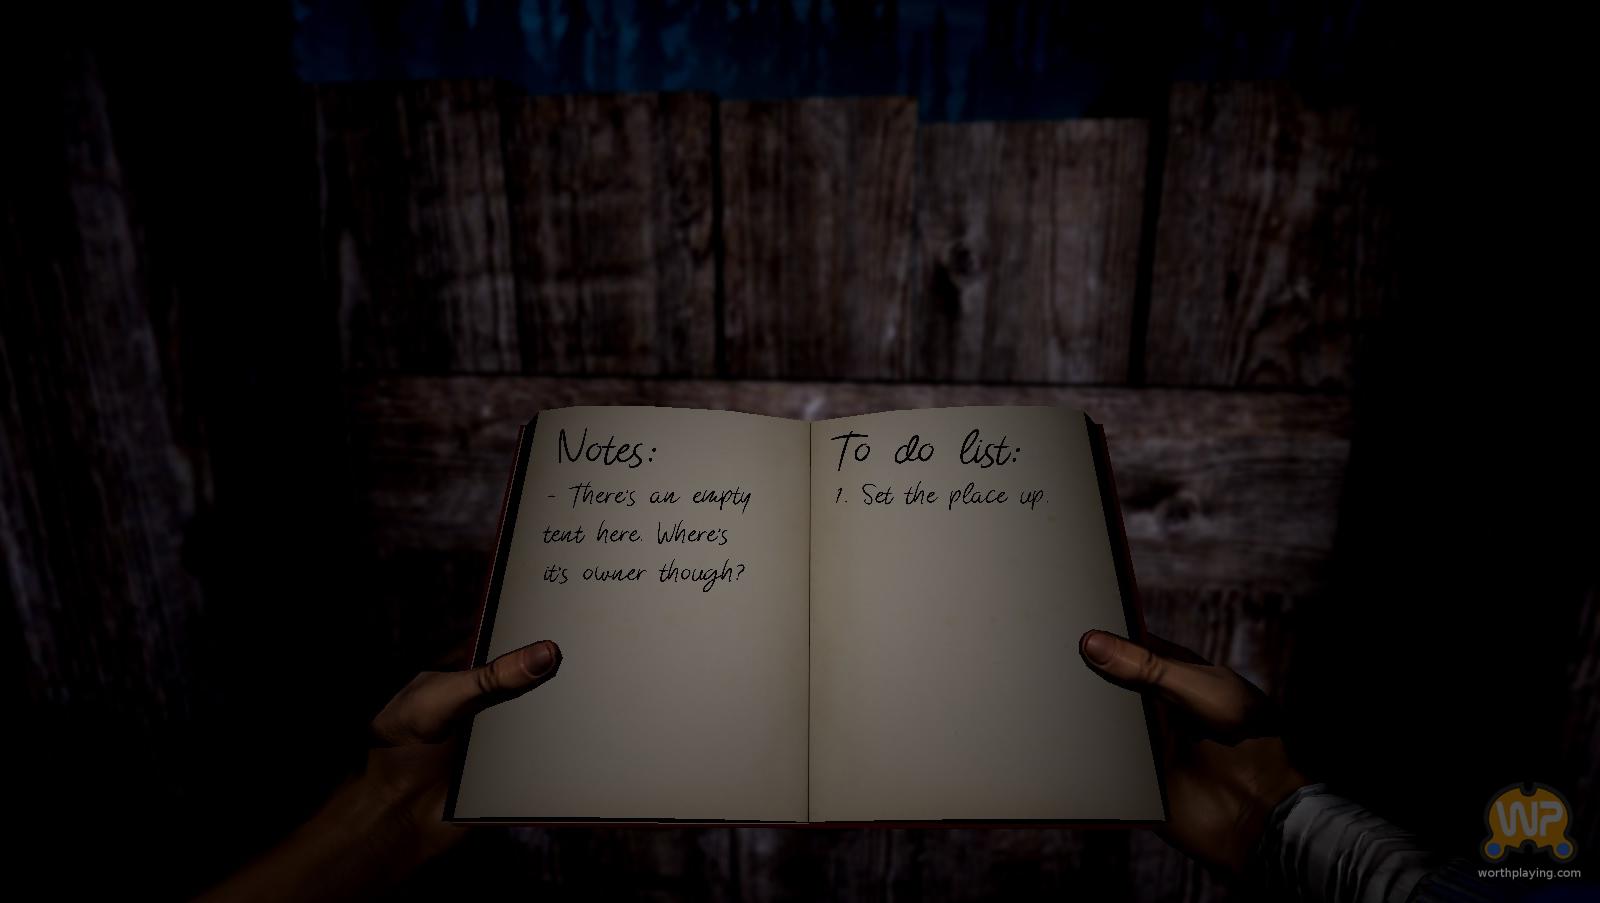 Notes:
- There's an empty
tent here. Where's
it's owner though?
To do list:
1. Set the place up.
WP
worthplaying.com